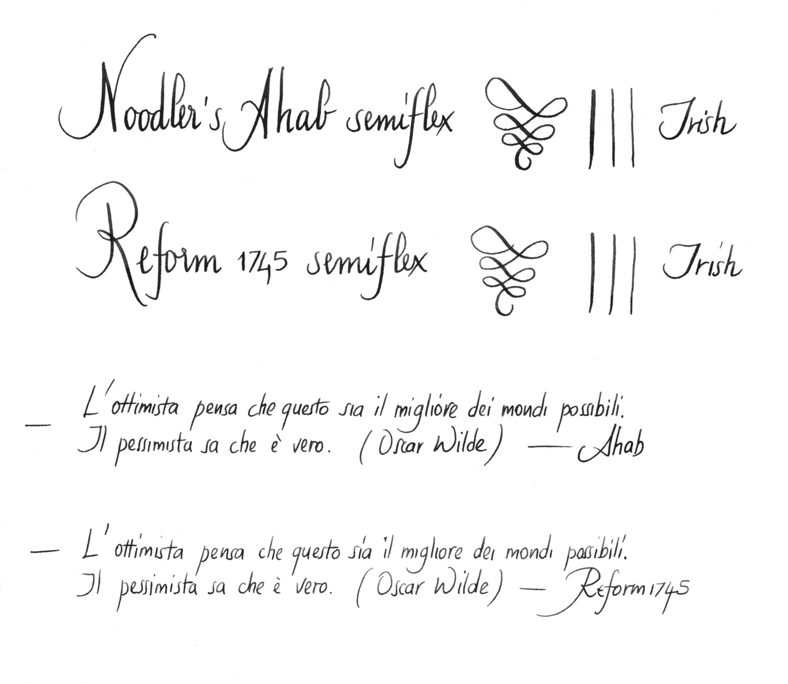 Noodler's Ahab semiflex Irish
Reform 1745 semiflex Irish
— L'ottimista pensa che questo sia il migliore dei mondi possibili.
Il pessimista sa che è vero. (Oscar Wilde) — Ahab
— L'ottimista pensa che questo sia il migliore dei mondi possibili.
Il pessimista sa che è vero. (Oscar Wilde) — Reform 1745